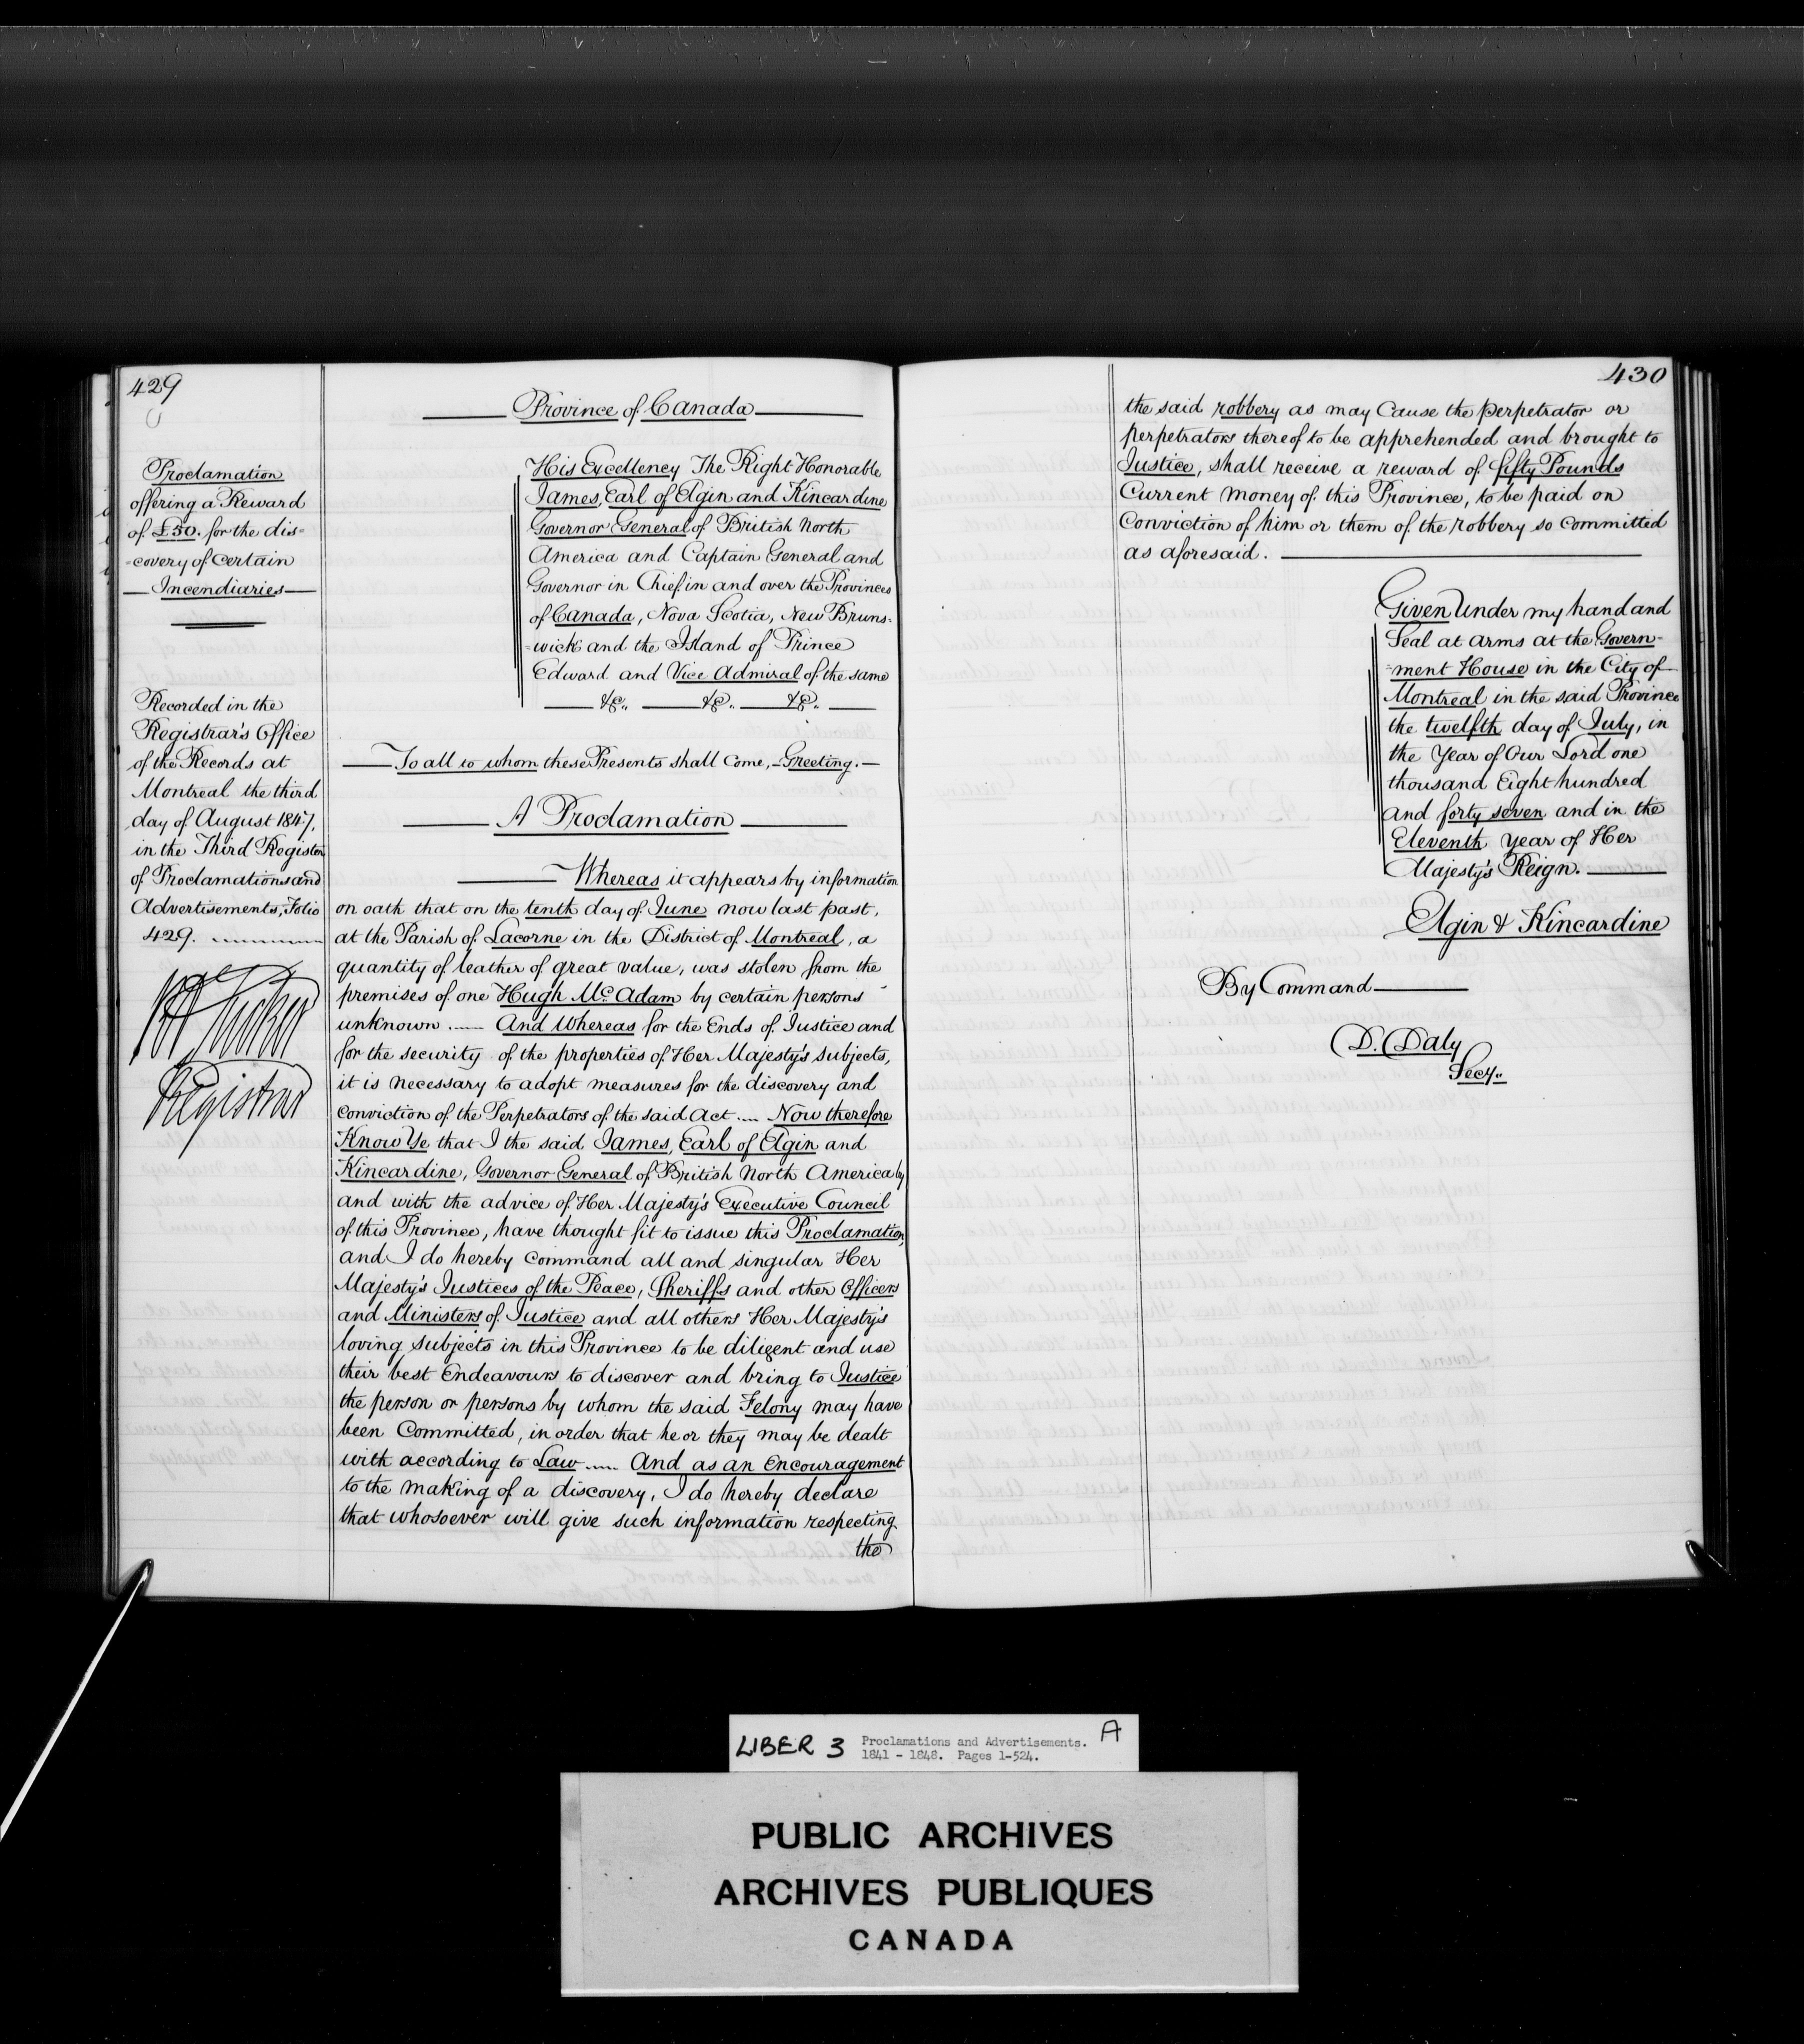 429
Proclamation
offering a Reward
of £50. for the dis=
=covery of Certain
Incendiaries
Recorded in the
Registrar's Office
of the Records at
Montreal the third
day of August 1847,
in the Third Register
of Proclamations and
Advertisements, Folio
429.
Registrar
Province of Canada
His Excellency The Right Honorable
James, Earl of Elgin and Kincardine
Governor General of British North
America and Captain General and
Governor in Chief in and over the Provinces
of Canada, Nova Scotia, New Bruns=
=wick and the Island of Prince
Edward and Vice Admiral of the same
&c. &c. &c.
To all to whom these Presents shall Come, Greeting.
A Proclamation
Whereas it appears by information
on oath that on the tenth day of June now last past,
at the Parish of Lacorne in the District of Montreal, a
quantity of leather of great value, was stolen from the
premises of one Hugh McAdam by certain persons
unknown. And Whereas for the Ends of Justice and
for the security of the properties of Her Majesty's subjects,
it is necessary to adopt measures for the discovery and
Conviction of the Perpetrators of the said Act. Now therefore
Know Ye that I the said James, Earl of Elgin and
Kincardine, Governor General of British North America by
and with the advice of Her Majesty's Executive Council
of this Province, have thought fit to issue this Proclamation,
and I do hereby Command all and singular Her
Majesty's Justices of the Peace, Sheriffs and other Officers
and Ministers of Justice and all others Her Majesty's
loving subjects in this Province to be diligent and use
their best Endeavours to discover and bring to Justice
the person or persons by whom the said Felony may have
been Committed, in order that he or they may be dealt
with according to Law. And as an Encouragement
to the making of a discovery, I do hereby declare
that whosoever will give such information respecting
the
430
the said robbery as may Cause the perpetrator or
perpetrators thereof to be apprehended and brought to
Justice, shall receive a reward of fifty Pounds
Current money of this Province, to be paid on
Conviction of him or them of the robbery so Committed
as aforesaid.
Given Under my hand and
Seal at Arms at the Govern=
=ment House in the City of
Montreal in the said Province
the twelfth day of July, in
the Year of Our Lord one
thousand Eight hundred
and forty seven and in the
Eleventh Year of Her
Majesty's Reign.
Elgin & Kincardine
By Command
D. Daly
Secy.
LIBER 3 Proclamations and Advertisements. A
1841 - 1848. Pages 1-524.
PUBLIC ARCHIVES
ARCHIVES PUBLIQUES
CANADA